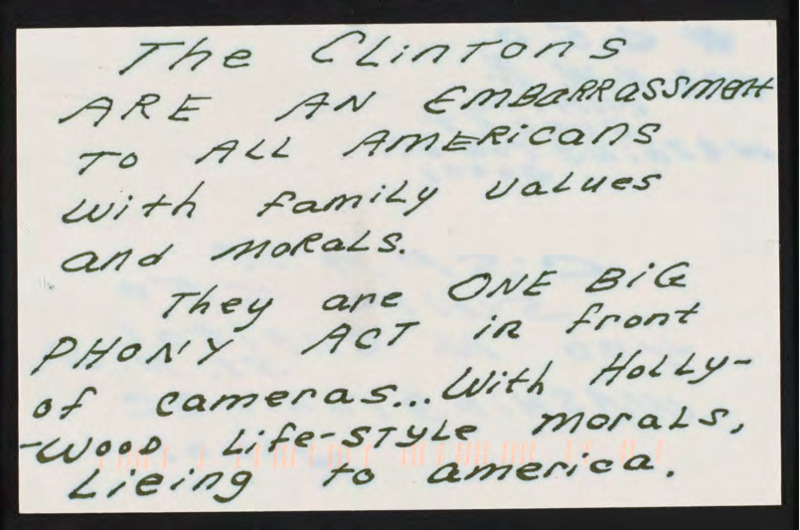 The Clintons
ARE AN EMBARRASSMENT
TO ALL AMERICANS
with family values
and MORALS.
They are ONE BiG
PHONY ACT in front
of cameras...With HOLLY-
-WOOD Life-STYLe morals,
Lieing to america.